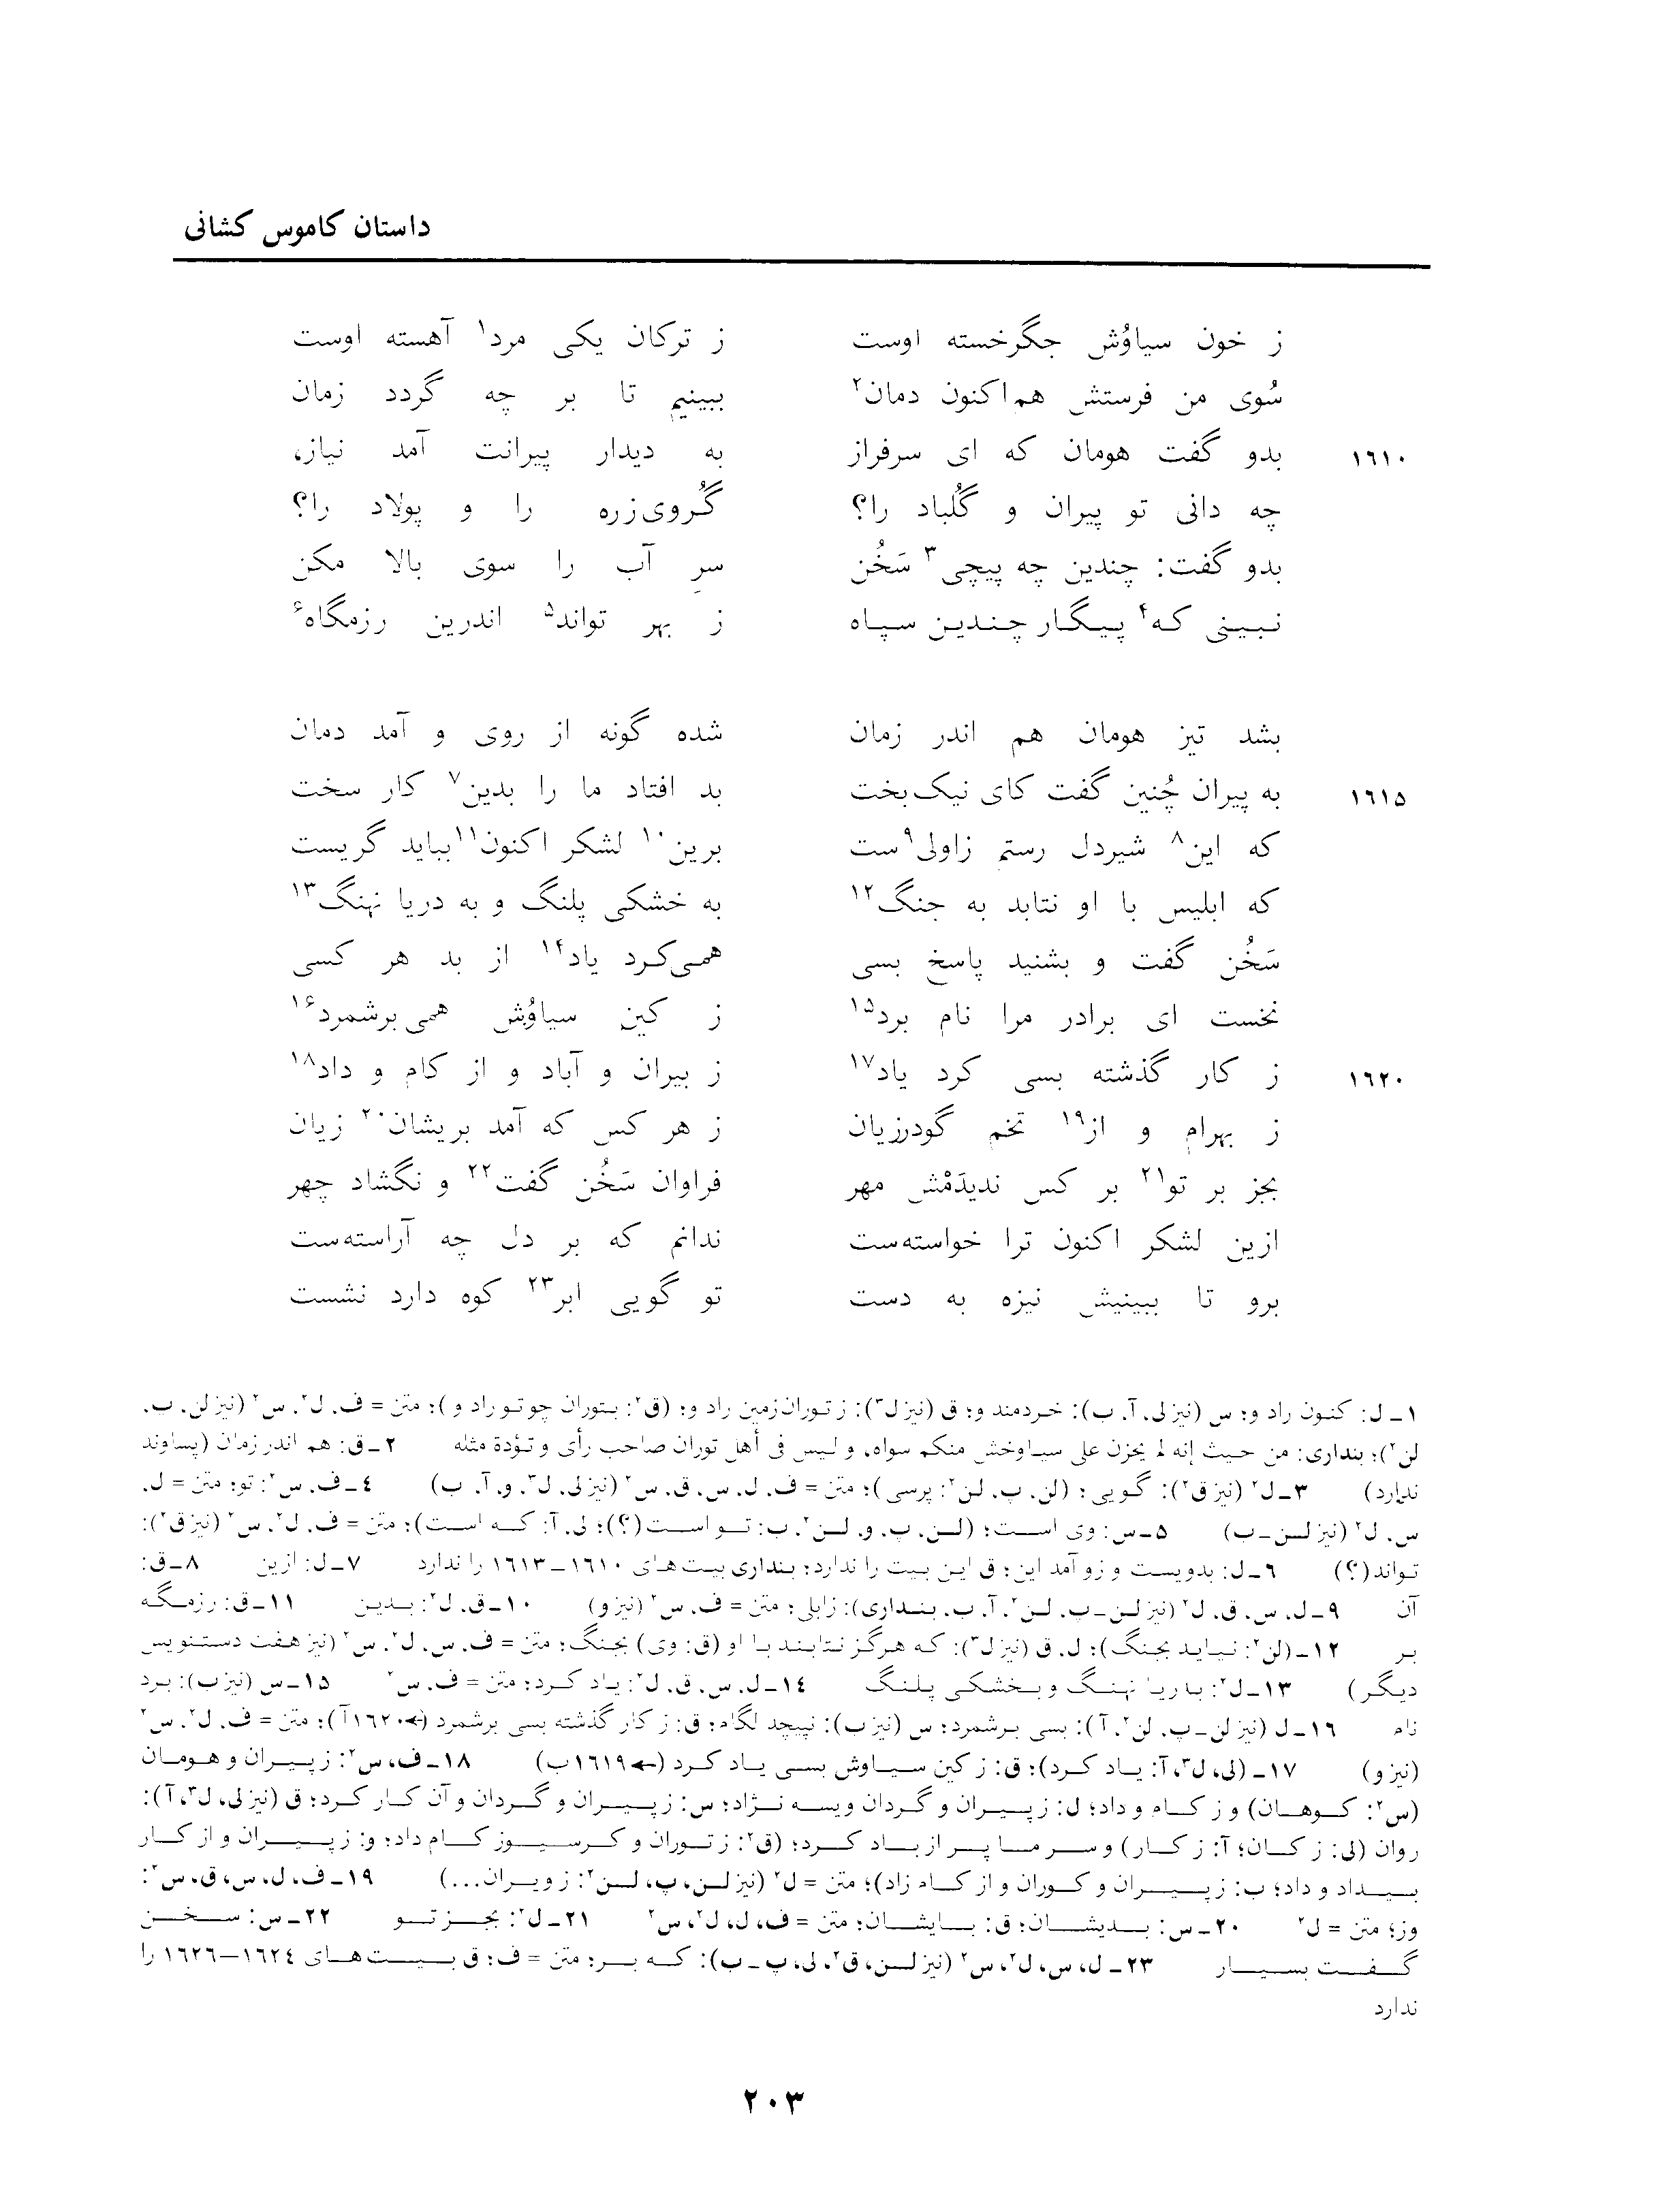 داستان کاموس کشانی
ز خون سیاوُش جگرخسته اوست ز ترکان یکی مرد۱ آهسته اوست
سُوی من فرستش هم‌اکنون دمان۲ ببینیم تا بر چه گردد زمان
۱٦۱۰ بدو گفت هومان که ای سرفراز به دیدار پیرانت آمد نیاز،
چه دانی تو پیران و گُلباد را؟ گُروی‌زره را و پولاد را؟
بدو گفت: چندین چه پیچی۳ سَخُن سرِ آب را سوی بالا مکن
نبینی که۴ پیگار چندین سپاه ز بهر تواند۵ اندرین رزمگاه۶
بشد تیز هومان هم اندر زمان شده گونه از روی و آمد دمان
۱٦۱۵ به پیران چُنین گفت کای نیک‌بخت بد افتاد ما را بدین۷ کار سخت
که این۸ شیردل رستم زاولی۹ست برین۱۰ لشکر اکنون۱۱ بباید گریست
که ابلیس با او نتابد به جنگ۱۲ به خشکی پلنگ و به دریا نهنگ۱۳
سَخُن گفت و بشنید پاسخ بسی همی‌کرد یاد۱۴ از بد هر کسی
نخست ای برادر مرا نام برد۱۵ ز کین سیاوُش همی برشمرد۱۶
۱٦۲۰ ز کار گذشته بسی کرد یاد۱۷ ز بیران و آباد و از کام و داد۱۸
ز بهرام و از۱۹ تخم گودرزیان ز هر کس که آمد بریشان۲۰ زیان
بجز بر تو۲۱ بر کس ندیدَمْش مهر فراوان سَخُن گفت۲۲ و نگشاد چهر
ازین لشکر اکنون ترا خواسته‌ست ندانم که بر دل چه آراسته‌ست
برو تا ببینیش نیزه به دست تو گویی ابر۲۳ کوه دارد نشست
۱ـ ل: کنون راد و؛ س (نیز لی، آ، ب): خردمند و؛ ق (نیز ل۳): ز توران‌زمین راد و؛ (ق۲: بتوران چو تو راد و)؛ متن = ف، ل۲، س۲ (نیز لن، پ،
لن۲)؛ بنداری: من حیث إنه لم یحزن علی سیاوخش منکم سواه، و لیس فی أهل توران صاحب رأی و تؤدة مثله ۲ـ ق: هم اندر زمان (پساوند
ندارد) ۳ـ ل۲ (نیز ق۲): گویی؛ (لن، پ، لن۲: پرسی)؛ متن = ف، ل، س، ق، س۲ (نیز لی، ل۳، و، آ، ب) ٤ـ ف، س۲: تو؛ متن = ل،
س، ل۲ (نیز لن ـ ب) ۵ـ س: وی است؛ (لن، پ، و، لن۲، ب: تو است (؟)؛ لی، آ: که است)؛ متن = ف، ل۲، س۲ (نیز ق۲):
تواند(؟) ٦ـ ل: بدویست و زو آمد این؛ ق این بیت را ندارد؛ بنداری بیت‌های ۱٦۱۰ـ۱٦۱۳ را ندارد ۷ـ ل: ازین ۸ـ ق:
آن ۹ـ ل، س، ق، ل۲ (نیز لن ـ پ، لن۲، آ، ب، بنداری): زابلی؛ متن = ف، س۲ (نیز و) ۱۰ـ ق، ل۲: بدین ۱۱ـ ق: رزمگه
بر ۱۲ـ (لن۲: نیاید بجنگ)؛ ل، ق (نیز ل۳): که هرگز نتابند با او (ق: وی) بجنگ؛ متن = ف، س، ل۲، س۲ (نیز هفت دستنویس
دیگر) ۱۳ـ ل۲: بدریا نهنگ و بخشکی پلنگ ۱٤ـ ل، س، ق، ل۲: یاد کرد؛ متن = ف، س۲ ۱۵ـ س (نیز ب): برد
نام ۱٦ـ ل (نیز لن ـ پ، لن۲، آ): بسی برشمرد؛ س (نیز ب): نپیچد لگام؛ ق: ز کار گذشته بسی برشمرد (←۱٦۲۰آ)؛ متن = ف، ل۲، س۲
(نیز و) ۱۷ـ (لی، ل۳، آ: یاد کرد)؛ ق: ز کین سیاوش بسی یاد کرد (←۱٦۱۹ب) ۱۸ـ ف، س۲: ز پیران و هومان
(س۲: کوهان) و ز کام و داد؛ ل: ز پیران و گردان ویسه نژاد؛ س: ز پیران و گردان و آن کار کرد؛ ق (نیز لی، ل۳، آ):
روان (لی: ز کان؛ آ: ز کار) و سر ما پر از باد کرد؛ (ق۲: ز توران و کرسیوز کام داد؛ و: ز پیران و از کار
بیداد و داد؛ ب: ز پیران و کوران و از کام زاد)؛ متن = ل۲ (نیز لن، پ، لن۲: ز ویران...) ۱۹ـ ف، ل، س، ق، س۲:
وز؛ متن = ل۲ ۲۰ـ س: بدیشان؛ ق: بایشان؛ متن = ف، ل، ل۲، س۲ ۲۱ـ ل۲: بجز تو ۲۲ـ س: سخن
گفت بسیار ۲۳ـ ل، س، ل۲، س۲ (نیز لن، ق۲، لی، پ ـ ب): که بر؛ متن = ف؛ ق بیت‌های ۱٦۲٤ـ۱٦۲٦ را
ندارد
۲۰۳